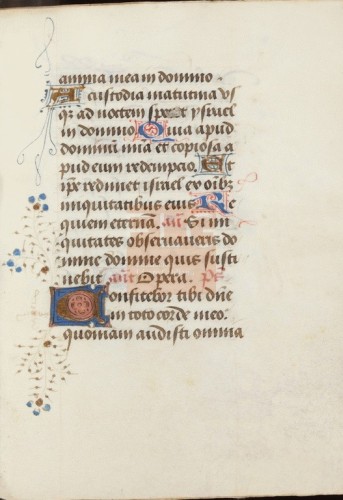 anima mea in domino.
A custodia matutina us
qz ad noctem speret ysrael
in domino. Quia apud
dominũ mia et copiosa a
pud eum redempcio. Et
ipse redimet israel ex oĩbz
iniquitatibus eius. Re
quiem eternã. añ. Si ini
quitates observaveris do
mine domine quis susti
nebit. añt Opera. Ps
Confitebor tibi dñe
in toto corde meo.
quoniam audisti omnia